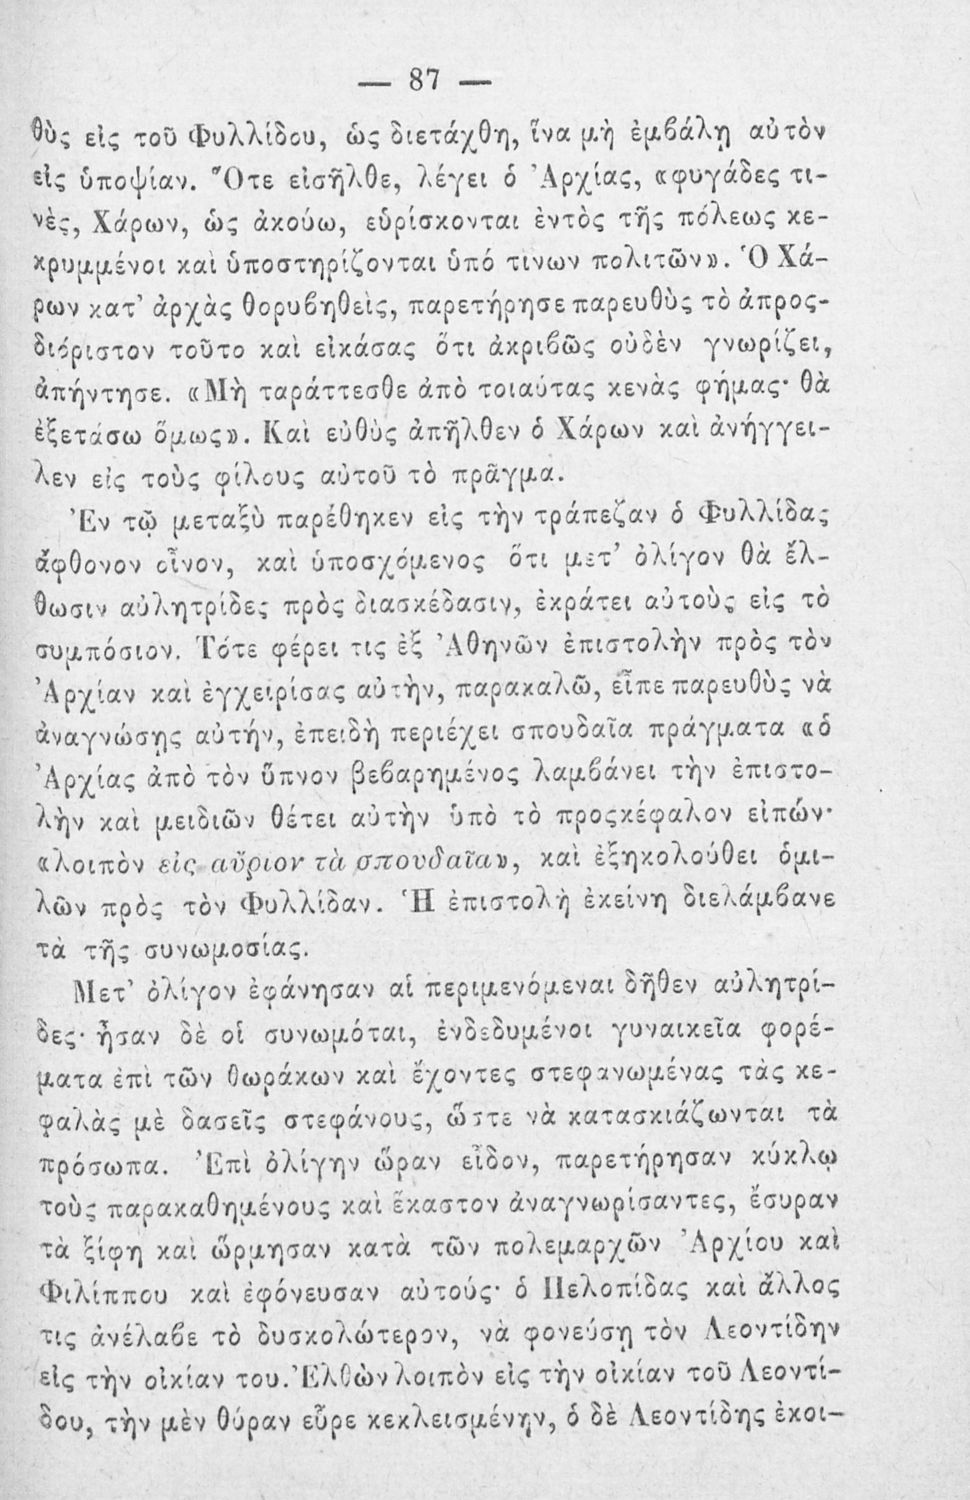 — 87 —
θὺς εἰς τοῦ Φυλλίδου, ὡς διετάχθη, ἵνα μὴ ἐμβάλῃ αὐτὸν
εἰς ὑποψίαν. Ὅτε εἰσῆλθε, λέγει ὁ Ἀρχίας, «φυγάδες τι-
νὲς, Χάρων, ὡς ἀκούω, εὑρίσκονται ἐντὸς τῆς πόλεως κε-
κρυμμένοι καὶ ὑποστηρίζονται ὑπό τινων πολιτῶν». Ὁ Χά-
ρων κατ’ ἀρχὰς θορυβηθεὶς, παρετήρησε παρευθὺς τὸ ἀπρος-
διόριστον τοῦτο καὶ εἰκάσας ὅτι ἀκριβῶς οὐδὲν γνωρίζει,
ἀπήντησε. «Μὴ ταράττεσθε ἀπὸ τοιαύτας κενὰς φήμας· θὰ
ἐξετάσω ὅμως». Καὶ εὐθὺς ἀπῆλθεν ὁ Χάρων καὶ ἀνήγγει-
λεν εἰς τοὺς φίλους αὐτοῦ τὸ πρᾶγμα.
Ἐν τῷ μεταξὺ παρέθηκεν εἰς τὴν τράπεζαν ὁ Φυλλίδας
ἄφθονον οἶνον, καὶ ὑποσχόμενος ὅτι μετ’ ὀλίγον θὰ ἔλ-
θωσιν αὐλητρίδες πρὸς διασκέδασιν, ἐκράτει αὐτοὺς εἰς τὸ
συμπόσιον. Τότε φέρει τις ἐξ Ἀθηνῶν ἐπιστολὴν πρὸς τὸν
Ἀρχίαν καὶ ἐγχειρίσας αὐτὴν, παρακαλῶ, εἶπε παρευθὺς νὰ
ἀναγνώσῃς αὐτήν, ἐπειδὴ περιέχει σπουδαῖα πράγματα «ὁ
Ἀρχίας ἀπὸ τὸν ὕπνον βεβαρημένος λαμβάνει τὴν ἐπιστο-
λὴν καὶ μειδιῶν θέτει αὐτὴν ὑπὸ τὸ προςκέφαλον εἰπών·
«λοιπὸν εἰς αὔριον τὰ σπουδαῖα», καὶ ἐξηκολούθει ὁμι-
λῶν πρὸς τὸν Φυλλίδαν. Ἡ ἐπιστολὴ ἐκείνη διελάμβανε
τὰ τῆς συνωμοσίας.
Μετ’ ὀλίγον ἐφάνησαν αἱ περιμενόμεναι δῆθεν αὐλητρί-
δες· ἦσαν δὲ οἱ συνωμόται, ἐνδεδυμένοι γυναικεῖα φορέ-
ματα ἐπὶ τῶν θωράκων καὶ ἔχοντες στεφανωμένας τὰς κε-
φαλὰς μὲ δασεῖς στεφάνους, ὥστε νὰ κατασκιάζωνται τὰ
πρόσωπα. Ἐπὶ ὀλίγην ὥραν εἶδον, παρετήρησαν κύκλῳ
τοὺς παρακαθημένους καὶ ἕκαστον ἀναγνωρίσαντες, ἔσυραν
τὰ ξίφη καὶ ὥρμησαν κατὰ τῶν πολεμαρχῶν Ἀρχίου καὶ
Φιλίππου καὶ ἐφόνευσαν αὐτούς· ὁ Πελοπίδας καὶ ἄλλος
τις ἀνέλαβε τὸ δυσκολώτερον, νὰ φονεύσῃ τὸν Λεοντίδην
εἰς τὴν οἰκίαν του. Ἐλθὼν λοιπὸν εἰς τὴν οἰκίαν τοῦ Λεοντί-
δου, τὴν μὲν θύραν εὗρε κεκλεισμένην, ὁ δὲ Λεοντίδης ἐκοι-